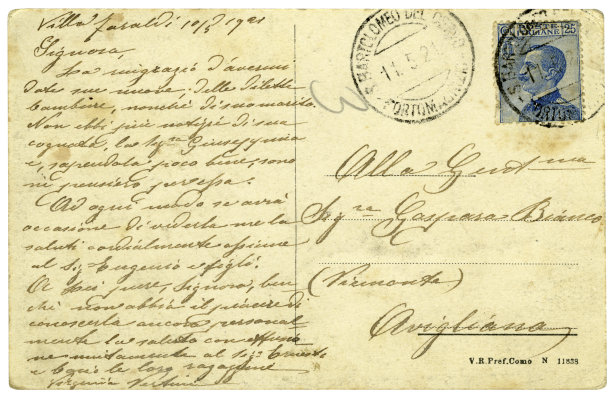 Villa Faraldi 10/5 1921
Signora,
La ringrazio d'avermi
date sue nuove, delle dilette
bambine, nonché di suo marito.
Non ebbi più notizie di sua
cognata, la Sigra Giuseppina
e, sapendola poco bene, sono
in pensiero per essa.
Ad ogni modo se avrà
occasione di vederla me la
saluti cordialmente assieme
al Sig. Eugenio e figli.
A Lei pure, Signora, ben
chè non abbia il piacere di
conoscerla ancora personal-
mente la saluto con effusio
ne unitamente al Sigr Ernesto
e le loro ragazzine
Virginia
S. BARTOLOMEO DEL CERVO
11.5.21
PORTO MAURIZIO
POSTE ITALIANE 25
S. BARTOLOMEO
PORTO
Alla Gent ma
Sigra Gaspara Bianco
(Piemonte)
Avigliana
V. R. Pref. Como N 11838